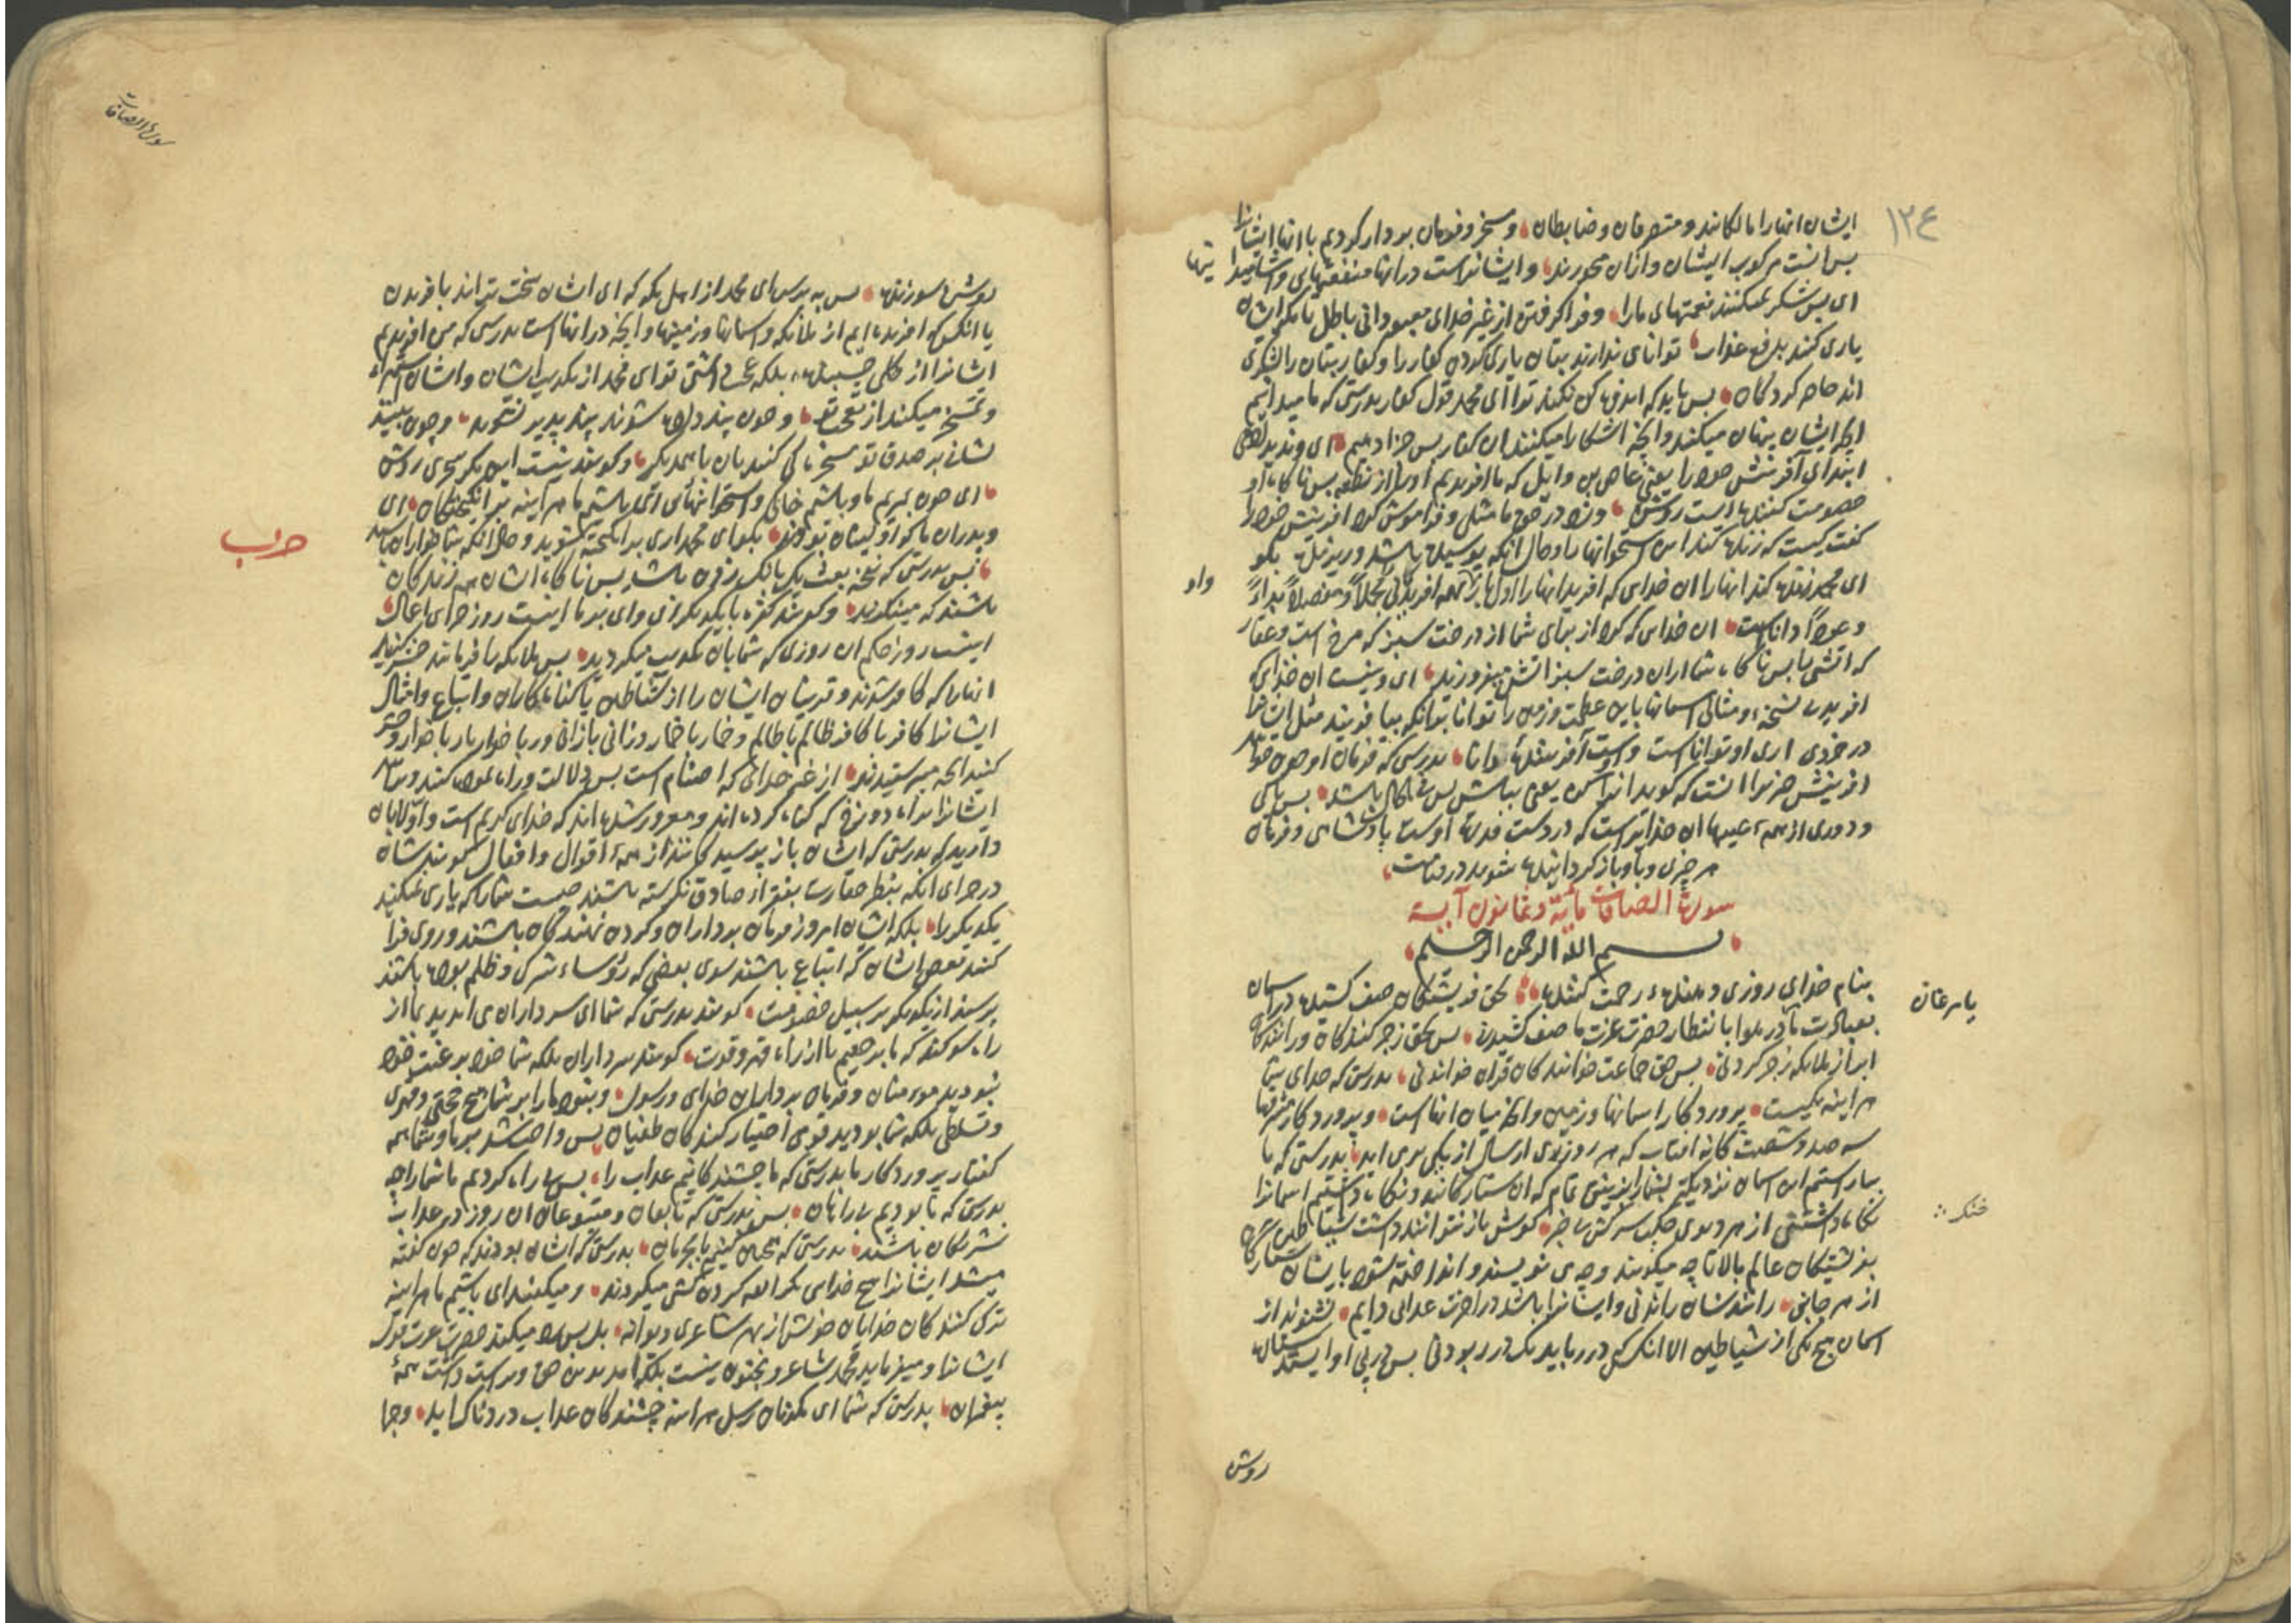 ١٢٤
ایشان انهارا مالکانند و متصرفان و ضابطان و مسخر و فرمان بردار کردیم با انها ایشانرا
پس انست مرکوب ایشان و ازان میخورند و ایشانراست درانها منفعتهایی و
ای پس شکر نمیکنند نعمتهای مارا و فرا کرفتند از غیر خدای معبودانی باطل تا مکر ایشان
یاری کنند بدفع عذاب توانایی ندارند بتان یاری کردن کفار را و کفار بتان را لشکری
اند حاضر کردکان پس باید که اندوهکین نکند ترا ای محمد قول کفار بدرستی که ما میدانیم
انچه ایشان پنهان میکنند و انچه اشکارا میکنند ان کفار پس جزا دهیم ای و ندید
ابتدای آفرینش خود را یعنی عاص بن وایل که ما افریدیم او را از نطفه پس ناکاه او
خصومت کننده است روشن و زد در حق ما مثل و فراموش کرد افرینش خود را
کفت کیست که زنده کند این استخوانها را و حال انکه پوسیده باشد و ریزیده بکو
ای محمد زنده کند انها را ان خدای که افرید انها را اول بار همه افریدنی مجملاً و مفصلاً
واو
و عوداً داناست ان خدایی که کرد از برای شما از درخت سبز که مرخ است و عفار
که اتشی پس ناکاه شما از ان درخت سبز اتش میفروزید ای و نیست ان خدای که
افریدن اسمانها باین عظمت و زمین را توانا بر انکه بیافریند مثل ایشانرا
در خردی اری او تواناست و اوست آفریننده دانا بدرستی که فرمان او چون خواهد
افرینش چیزی را انست که کوید انرا کن یعنی بباش پس فی الحال باشد پس پاکی
و دوری از همه عیبها ان خدایراست که در دست قدرت اوست پادشاهی و فرمان
هر چیزی و باو باز کردانیده شوید در قیامت
سورة الصافات مائة و ثمانون آیة
بسم الله الرحمن الرحیم
بنام خدای روزی دهنده رحمت کننده بحق فریشتکان صف کشیده در اسمان
بعبادت یا در هوا با نتظار حضرت عزت ما صف کشیدنی پس بحق زجر کنندکان و رانندکان
ابر از ملایکه زجر کردنی پس بحق جماعت خوانندکان قران خواندنی بدرستی که خدای شما
هراینه یکیست پرورد کار اسمانها و زمین و انچه میان انهاست و پرورد کار مشرقها
سه صد و شصت کانه افتاب که هر روز بروی از سال از یکی برمی اید بدرستی که ما
بیاراستیم این اسمان نزدیکتر بشما را بزینتی تمام که ان ستارکانند و نکاه داشتیم اسمانرا
نکاه داشتنی از هر دیوی سرکش کوش باز نتوانند داشت شیاطین
بفریشتکان عالم بالا تا چه میکویند و چه می نویسند و انداخته شود بایشان
از هر جانبی راندنشان راندنی و ایشانرا باشد در اخرت عذابی دایم نشنوند از
اسمان هیچ یکی از شیاطین الا انکس که در رباید یک در ربودنی پس در پی او ایستد
روشن
سورة الصافات
روشن سوزنده پس به پرس ای محمد از اهل مکه که ای ایشان سخت تراند بافریدن
یا انکس که افریده ایم از ملایکه و اسمانها و زمینها و انچه در انهاست بدرستی که من افریدیم
ایشانرا از کلی چسبنده بلکه عجب داشتی تو ای محمد از تکذیب ایشان و ایشان
و تمسخر میکنند از تعجب تو و چون پند داده شوند پند پذیر نشوند و چون بینند
نشانی بر صدق تو سخریه کی کنند بان با یکدیکر و کویند نیست این مکر سحری روشن
ای چون بمیریم ما و باشیم خاکی و استخوانهایی ای باشیم ما هراینه بر انکیختکان ای
و پدران ما که اولینان بودند بکو ای محمد اری بر انکیخته شوید و حال انکه شما خوارانید
پس بدرستی که نفخه بعث یک بانک زدن باشد پس ناکاه ایشان همه زندکان
باشند که مینکرند و کویند کفره با یکدیکر ای وای بر ما اینست روز جزای اعمال
اینست روز حکم ان روزی که شما بان تکذیب میکردید پس ملایکه را فرمایند حشر کنید
انهارا که کافر شدند و قرینان ایشان را از شیاطین یا کناه کاران و اتباع و امثال
ایشانرا کافر با کافر ظالم با ظالم و خمار با خمار و زانی با زانی و ربا خوار با ربا خوار و حشر
کنید انچه میپرستیدند از غیر خدای که اصنام است پس دلالت و راه نمود کنند
ایشانرا براه دوزخ که کناه کرده اند و مغرور شده اند که خدای کریم است و
دارید که بدرستی که ایشان باز پرسیده کانند از همه اقوال و افعال
در جزای انکه بنظر حقارت نکرسته باشند چیست شمارا که یاری نمیکنید
یکدیکر را بلکه ایشان امروز فرمان برداران و کردن نهندکان باشند و روی فرا
کنند بعضی ایشان که اتباع باشند سوی بعضی که رؤساء شرک و ظلم بوده باشند
پرسند از یکدیکر بر سبیل خصومت کویند بدرستی که شما ای سرداران می امدید بما از
راه سوکند که ما بر حقیم یا از راه قهر و قدرت کویند سرداران بلکه شما خود برغبت خود
نبودید مومنان و فرمان برداران خدای و رسول و نبود مارا بر شما هیچ حجتی و قهری
و تسلطی بلکه شما بودید قومی اختیار کنندکان طغیان پس واجب شد بر ما و شما همه
کفتار پرورد کار ما بدرستی که ما چشندکانیم عذاب را پس بی راه کردیم ما شما را چه
بدرستی که ما بودیم بی راهان پس بدرستی که تابعان و متبوعان ان روز در عذاب
شریکان باشند بدرستی که همچنین کنیم با مجرمان بدرستی که ایشان بودند که چون کفته
میشد ایشانرا هیچ خدایی مکر الله کردن کشی میکردند و میکفتند ای باشیم ما هراینه
ترک کنندکان خدایان خویش از بهر شاعری دیوانه بل پس رد میکند حضرت عزت قول
ایشانرا و میفرماید محمد شاعر و مجنون نیست بلکه امد بدین حق و براست داشت همه
پیغمبران بدرستی که شما ای مکذبان رسل هراینه چشندکان عذاب دردناک اید و جزا